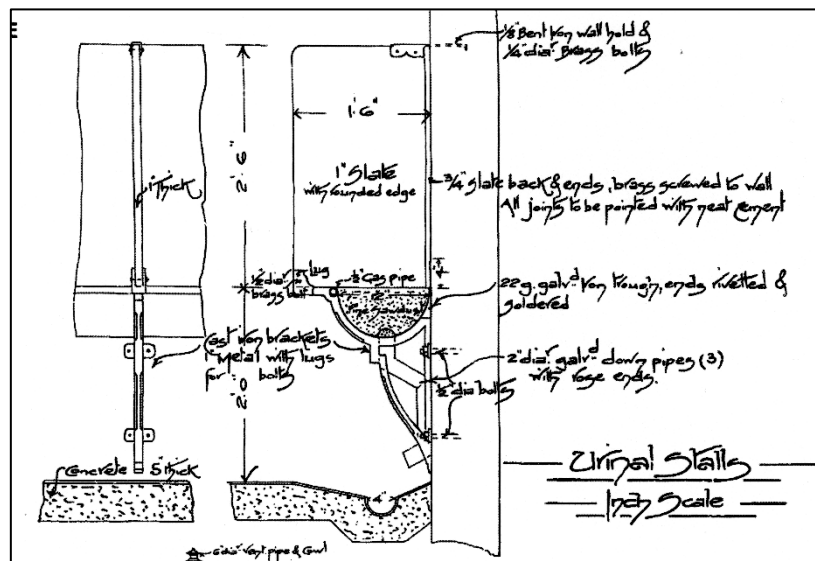 E
1/8" Bent Iron wall hold &
1/4" dia. Brass bolts
1'.6"
2'.6"
1" Slate
with rounded edge
1" thick
3/4" Slate back & ends, brass screwed to wall
All joints to be pointed with neat cement
1/2" dia.
brass bolt
lug
1/2" Gas pipe
fine sawdust
22 g. galvd. Iron trough, ends rivetted &
soldered
Cast iron brackets
1" Metal with lugs
for bolts
2" dia. galvd. down pipes (3)
with rose ends.
1/2" dia bolts
Concrete 5" thick
4"
Urinal Stalls
Inch Scale
6" dia. Vent pipe & Cowl